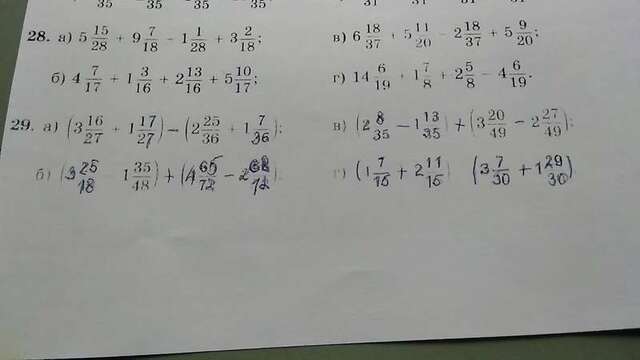 35 35 35 35 31 31 31 31
28. а) 5 15/28 + 9 7/18 - 1 1/28 + 3 2/18; в) 6 18/37 + 5 11/20 - 2 18/37 + 5 9/20;
б) 4 7/17 + 1 3/16 + 2 13/16 + 5 10/17; г) 14 6/19 + 1 7/8 + 2 5/8 - 4 6/19.
29. а) (3 16/27 + 1 17/27) - (2 25/36 + 1 7/36); в) (2 8/35 - 1 13/35) + (3 20/49 - 2 27/49);
б) (3 25/18 1 35/48) + (4 65/72 - 2 68/72). г) (1 7/15 + 2 11/15) (3 7/30 + 1 29/30)